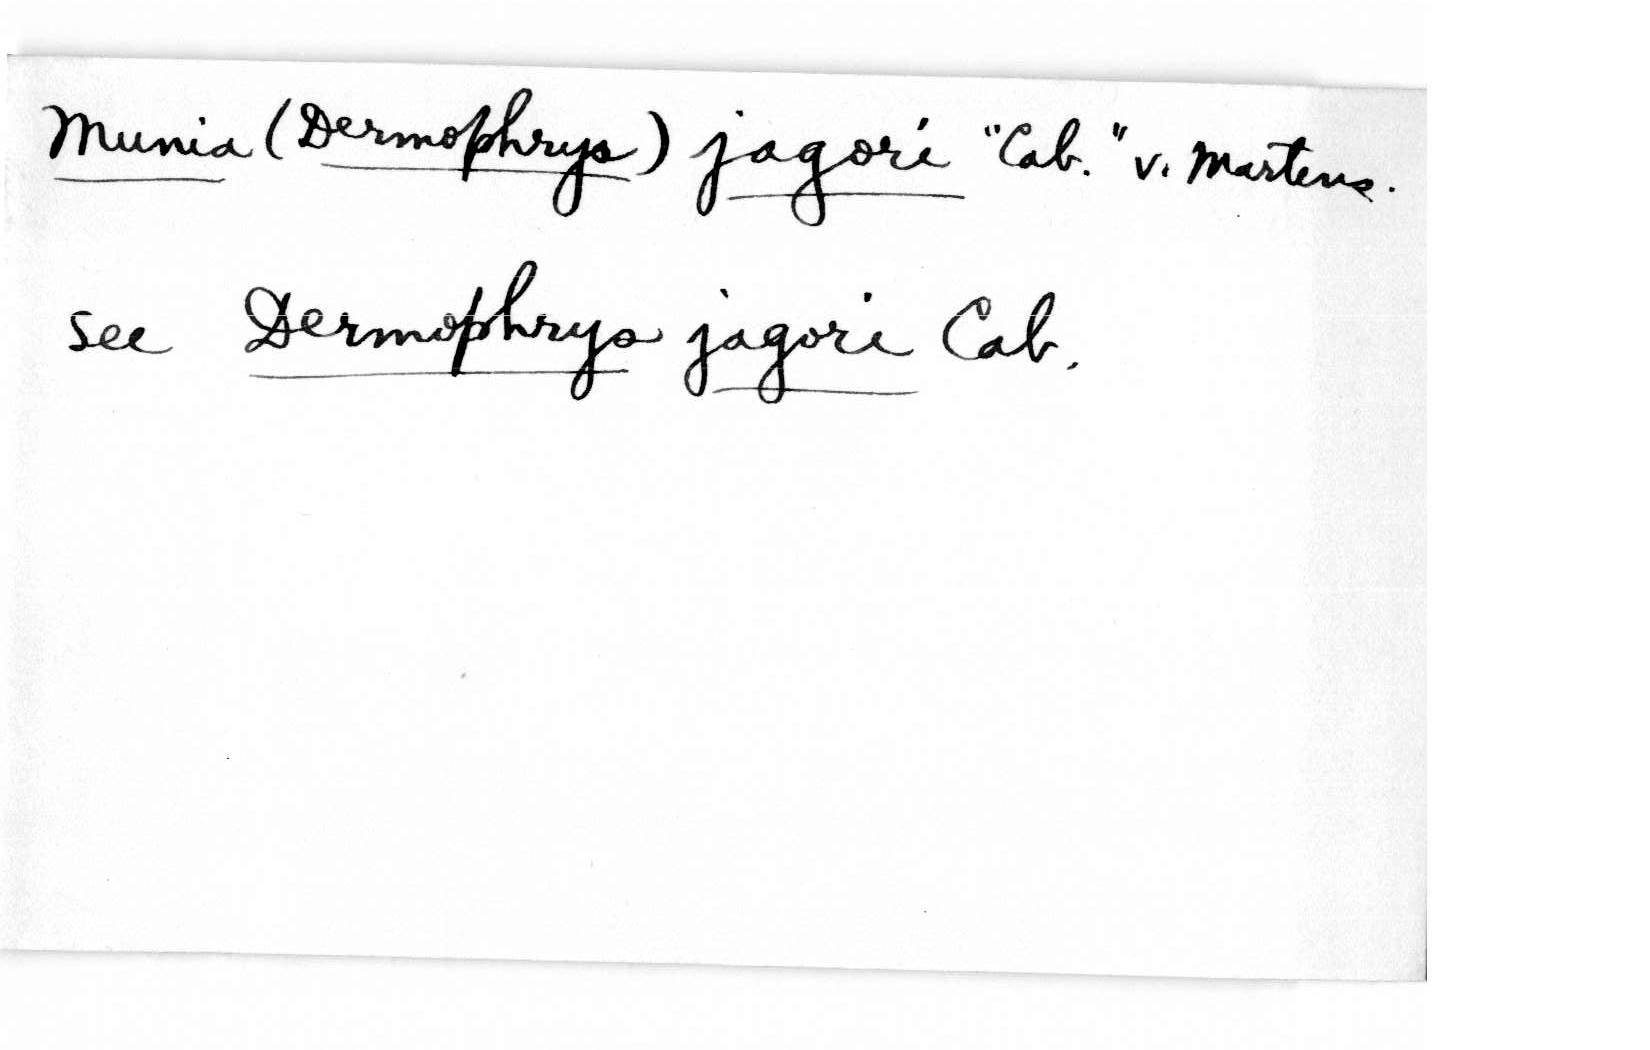 Munia (Dermophrys) jagori "Cab." v. Martens.
see Dermophrys jagori Cab.